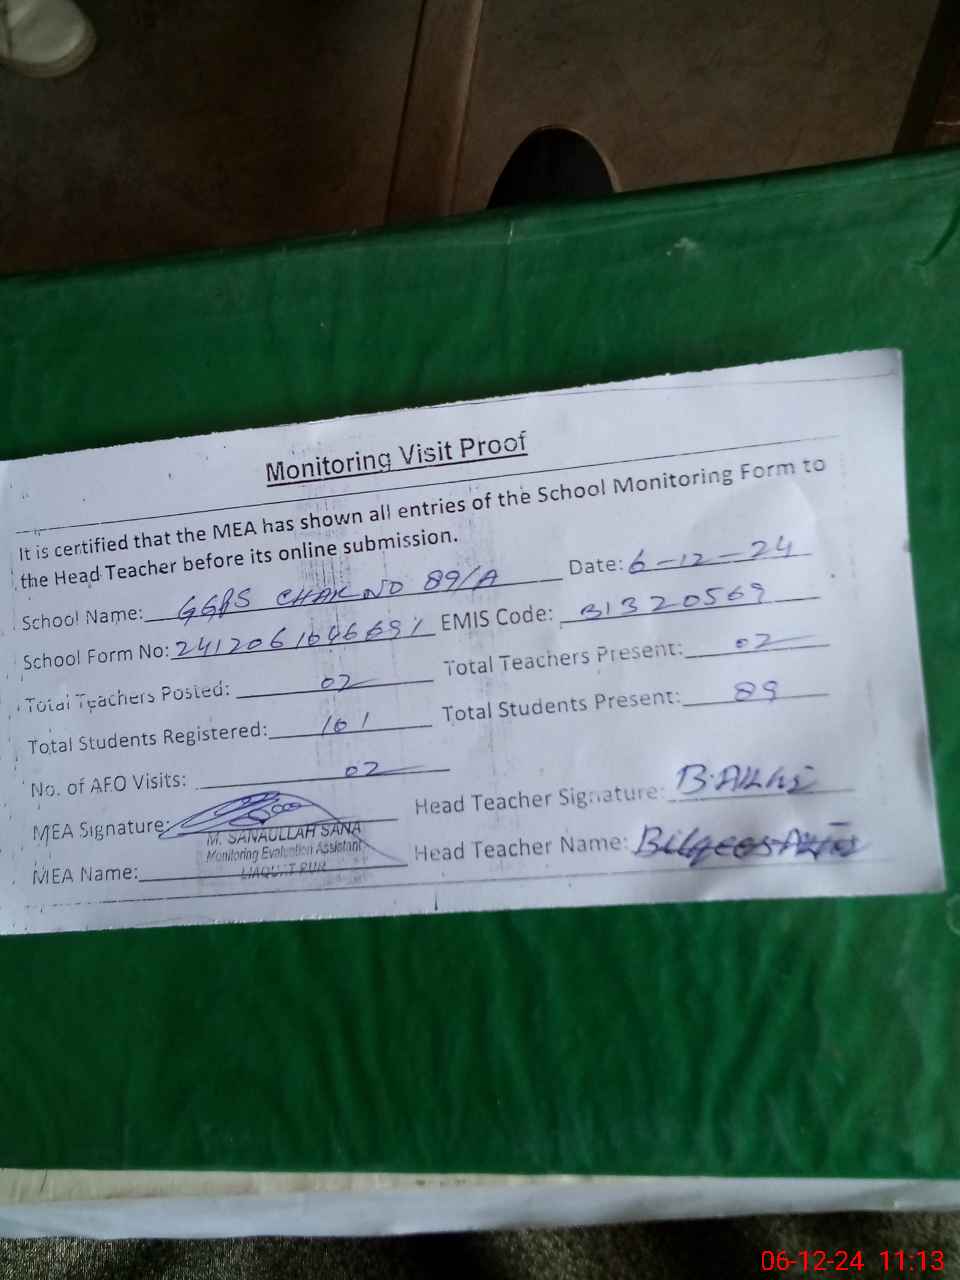 Monitoring Visit Proof
It is certified that the MEA has shown all entries of the School Monitoring Form to
the Head Teacher before its online submission.
School Name: GGPS CHAK NO 89/A Date: 6-12-24
School Form No: 241206104669 1 EMIS Code: 31320569
Total Teachers Posted: 02 Total Teachers Present: 02
Total Students Registered: 101 Total Students Present: 89
No. of AEO Visits: 02
MEA Signature: Head Teacher Signature:
M. SANAULLAH SANA
Monitoring Evaluation Assistant
LIAQUAT PUR
MEA Name: Head Teacher Name: Bilqees
06-12-24 11:13